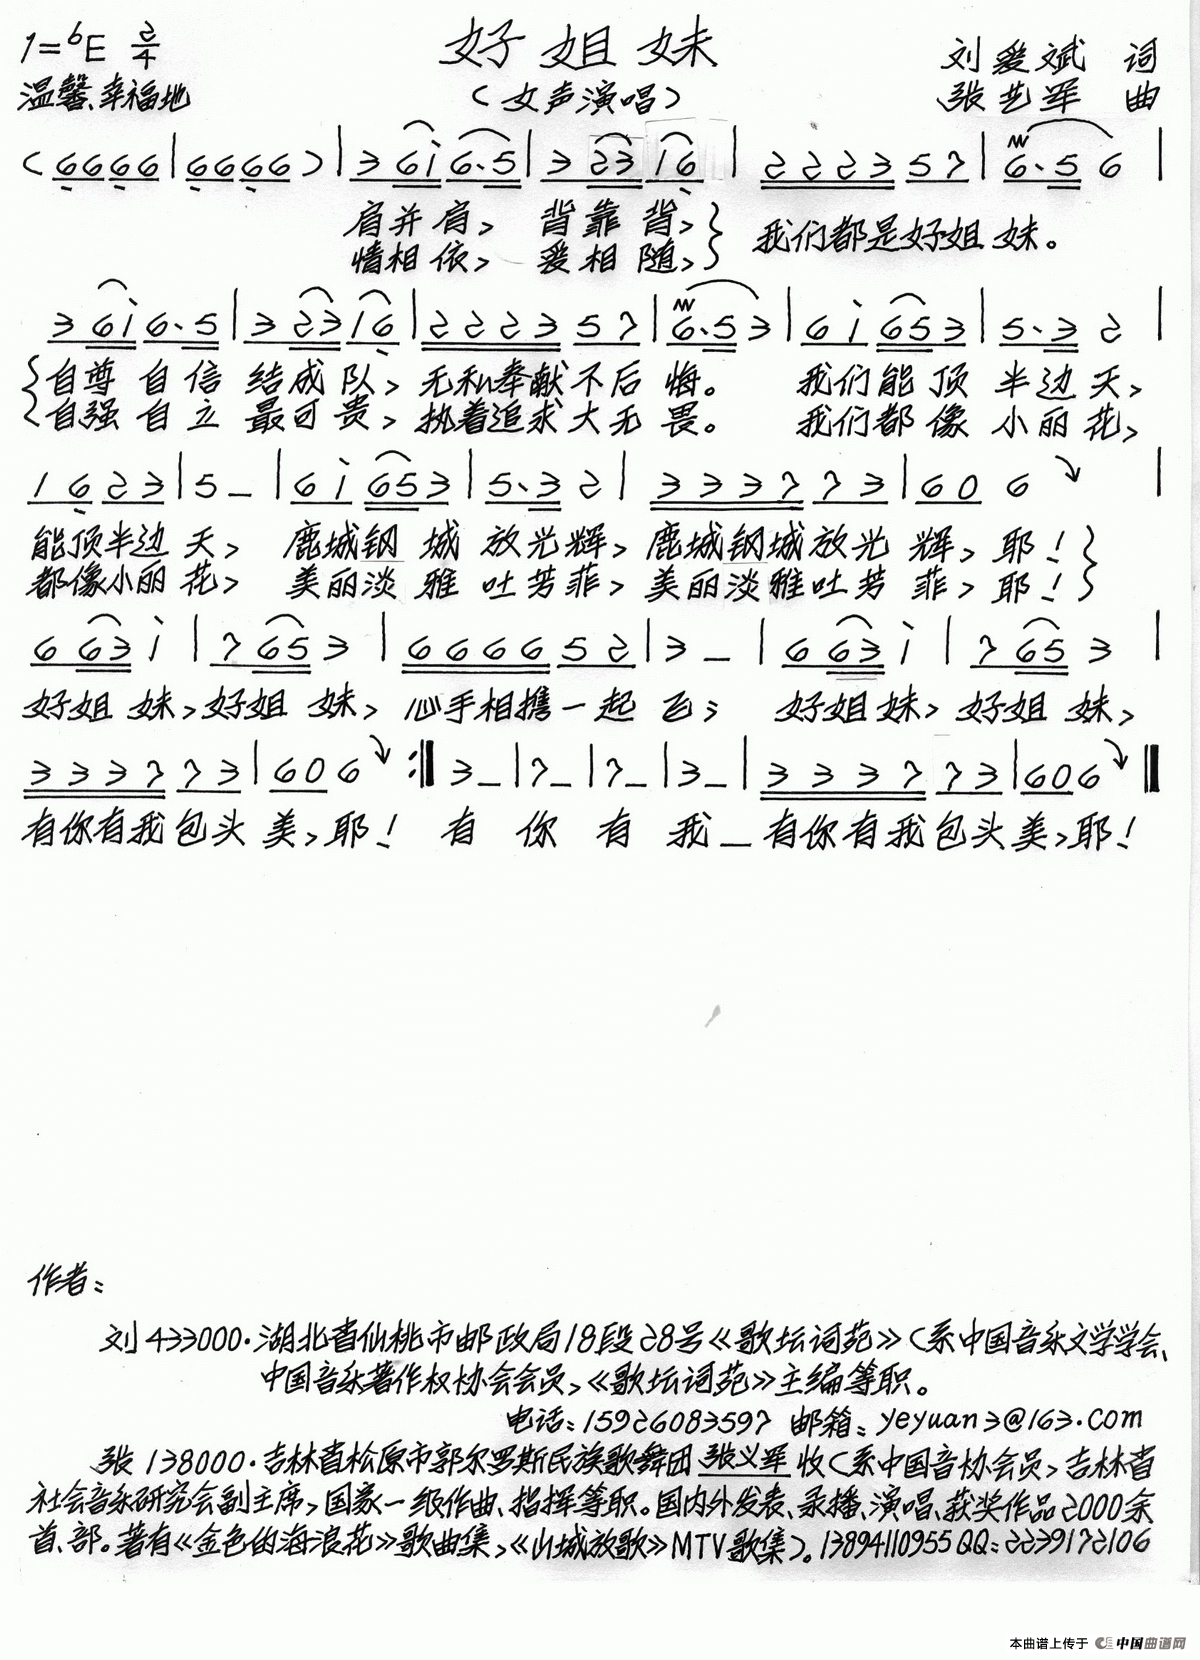 1=♭E 2/4 好姐妹 刘爱斌 词
温馨、幸福地 （女声演唱） 张艺军 曲
（6666|6666）|3 6i 6.5|3 23 16|2223 57|6.5 6|
肩并肩， 背靠背，} 我们都是好姐妹。
情相依， 爱相随，}
3 6i 6.5|3 23 16|2223 57|6.5 3|6 i 653|5.3 2|
{自尊自信结成队，无私奉献不后悔。 我们能顶半边天，
自强自立最可贵，执着追求大无畏。 我们都像小丽花，
1623|5–|6 i 653|5.3 2|3337 73|60 6|
能顶半边天， 鹿城钢城放光辉，鹿城钢城放光辉，耶！}
都像小丽花， 美丽淡雅吐芳菲，美丽淡雅吐芳菲，耶！
6 63 i|7 65 3|6666 52|3–|6 63 i|7 65 3|
好姐妹，好姐妹， 心手相携一起飞； 好姐妹，好姐妹，
3337 73|60 6:‖3–|7–|7–|3–|3337 73|606‖
有你有我包头美，耶！ 有 你 有 我–有你有我包头美，耶！
作者：
刘 433000·湖北省仙桃市邮政局18段28号《歌坛词苑》（系中国音乐文学学会、
中国音乐著作权协会会员，《歌坛词苑》主编等职。
电话：15926083597 邮箱：yeyuan3@163.com
张 138000·吉林省松原市郭尔罗斯民族歌舞团 张义军 收（系中国音协会员，吉林省
社会音乐研究会副主席，国家一级作曲、指挥等职。国内外发表、录播、演唱、获奖作品2000余
首、部。著有《金色的海浪花》歌曲集，《山城放歌》MTV歌集）。13894110955 QQ：2239172106
本曲谱上传于 中国曲谱网